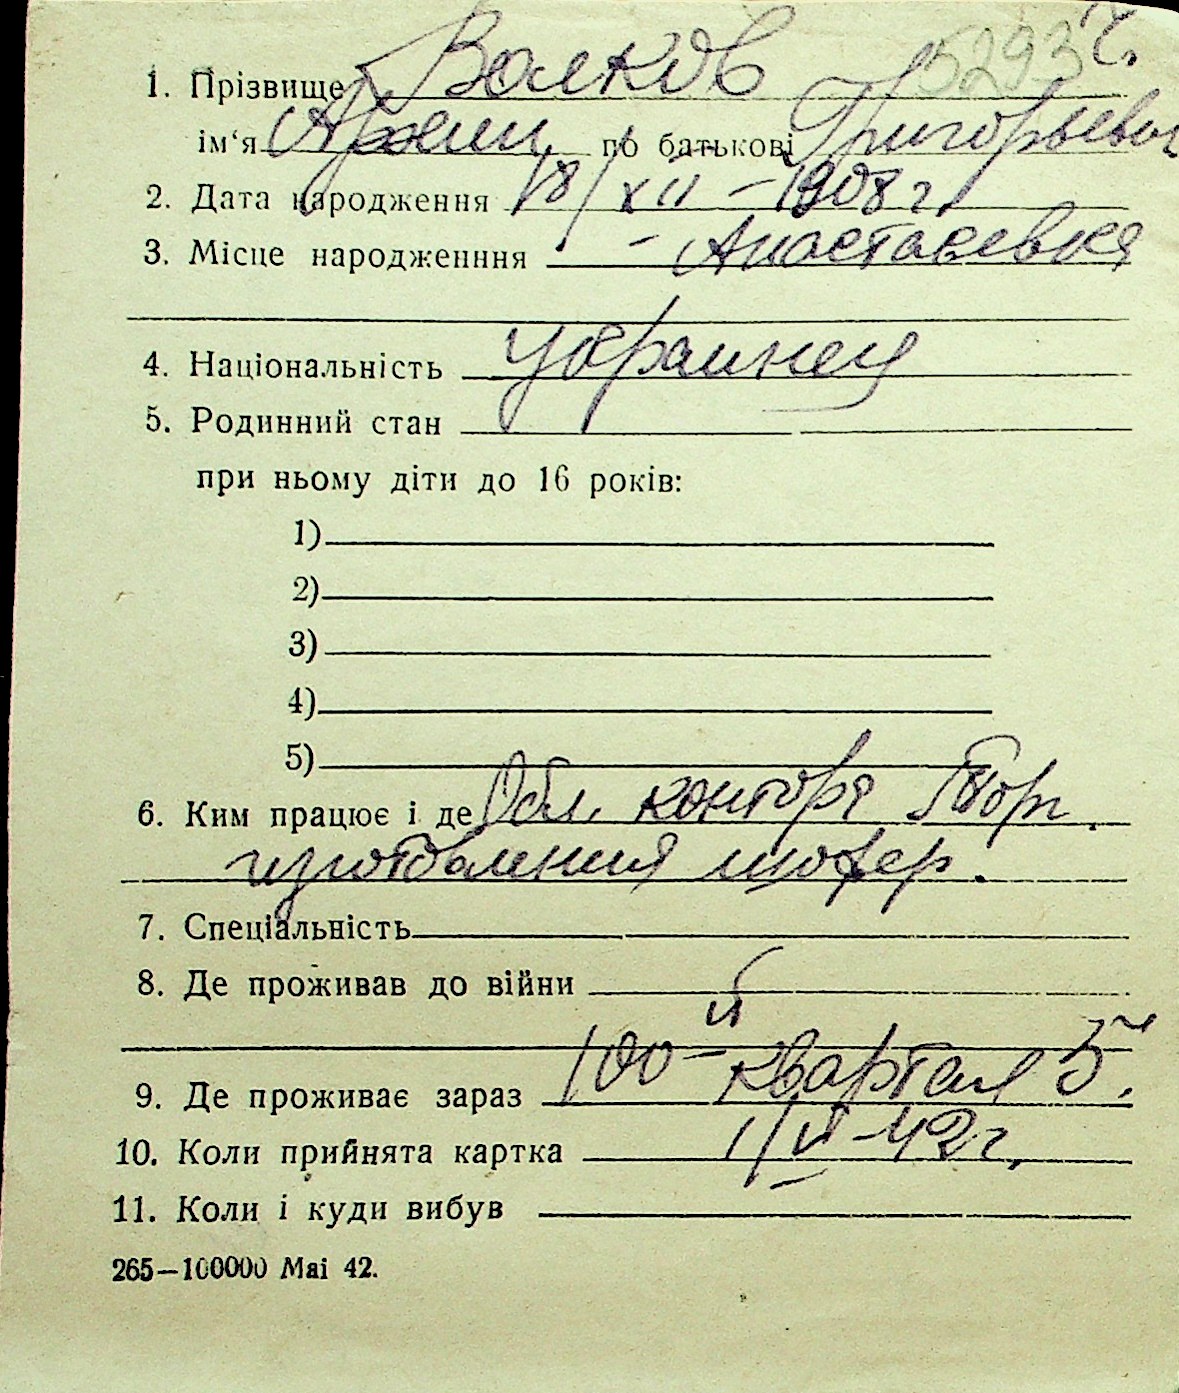 5293 г.
1. Прізвище Волков
ім‘я по батькові Григорьевич
2. Дата народження 18/XII – 1908 г.
3. Місце народженння – Анастасевка
4. Національність украинец
5. Родинний стан
при ньому діти до 16 років:
1)
2)
3)
4)
5)
6. Ким працює і де Обл. контора
изготовления шофер.
7. Спеціальність
8. Де проживав до війни
9. Де проживає зараз 100-й квартал 5
10. Коли прийнята картка 1/VI-42 г.
11. Коли і куди вибув
265—100000 Mai 42.